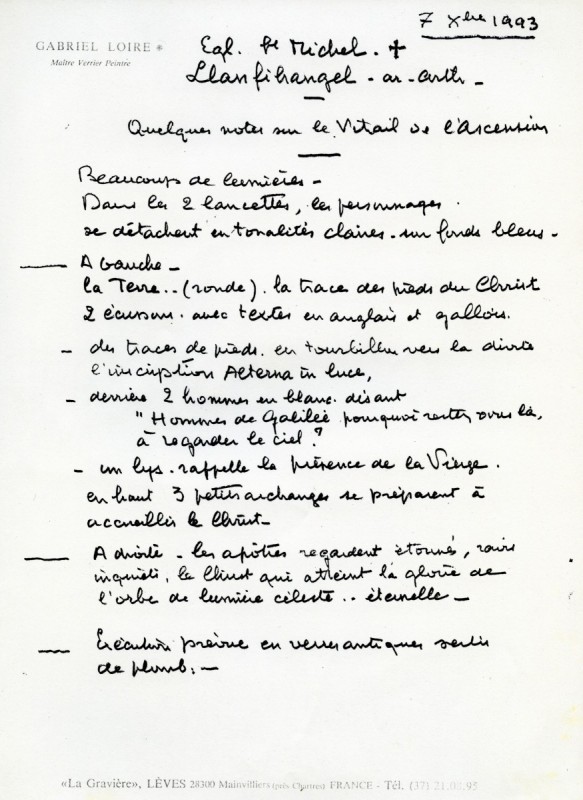 7 Xbre 1993
GABRIEL LOIRE *
Maître Verrier Peintre
Egl. St Michel. +
Llanfihangel - ar - arth -
Quelques notes sur le Vitrail de l'Ascension
Beaucoup de lumières -
Dans les 2 lancettes, les personnages .
se détachent en tonalités claires - sur fonds bleus -
A Gauche -
la Terre .. (ronde). la trace des pieds du Christ
2 écussons . avec textes en anglais et gallois.
- des traces de pieds . en tourbillon vers la droite
l'inscription Aeterna in luce,
- derrière 2 hommes en blanc. disant
" Hommes de Galilée pourquoi restez vous là,
à regarder le ciel ?
- un lys . rappelle la présence de la Vierge .
en haut 3 petits archanges se préparent à
accueillir le Christ -
A droite - les apôtres regardent étonnés,
inquiets, le Christ qui atteint la gloire de
l'orbe de lumière céleste .. éternelle -
Exécution prévue en verres antiques sertis
de plomb . -
«La Gravière», LÈVES 28300 Mainvilliers (près Chartres) FRANCE - Tél. (37) 21.08.95